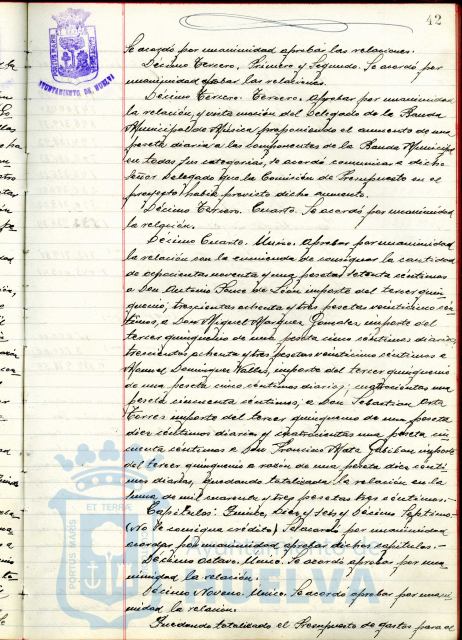 42
PORTUS MARIS
AYUNTAMIENTO DE HUELVA
Se acordó por unanimidad aprobar las relaciones.
Décimo Tercero, Primero y Segundo. Se acordó por
unanimidad aprobar las relaciones.
Décimo Tercero. Tercero. Aprobar por unanimidad
la relación, y vista moción del Delegado de la Banda
Municipal de Música proponiendo el aumento de una
peseta diaria a los componentes de la Banda Municipal
en todas sus categorías, se acordó comunicar a dicho
Señor Delegado que la Comisión de Presupuesto en el
proyecto había previsto dicho aumento.
Décimo Tercero. Cuarto. Se acordó por unanimidad
la relación.
Décimo Cuarto. Unico. Aprobar por unanimidad
la relación con la enmienda de consignar la cantidad
de setecientas noventa y una pesetas setenta céntimos
a Don Antonio Ponce de León importe del tercer quin-
quenio; trescientas ochenta y tres pesetas veinticinco cén-
timos, a Don Miguel Marquez Gonzalez importe del
tercer quinquenio de una peseta cinco céntimos diarios;
trescientas ochenta y tres pesetas veinticinco céntimos a
Manuel Dominguez Valles, importe del tercer quinquenio
de una peseta cinco céntimos diarios; cuatrocientas una
peseta cincuenta céntimos, a Don Sebastian Orta
Torres importe del tercer quinquenio de una peseta
diez céntimos diarios y cuatrocientas una peseta cin-
cuenta céntimos a Don Francisco Mata importe
del tercer quinquenio a razón de una peseta diez cénti-
mos diarios, quedando totalizada la relación en la
suma de mil cuarenta y tres pesetas tres céntimos.-
Capítulos: Quince, Diez y Seis y Décimo Septimo-
(No se consigna crédito) Se acordó por unanimidad
acordar por unanimidad aprobar dichos capítulos.-
Décimo Octavo. Unico. Se acordó aprobar por una-
nimidad la relación.
Décimo Noveno. Unico. Se acordó aprobar por unani-
midad la relación.
Quedando totalizado el Presupuesto de gastos para el
PORTUS MARIS ET TERRAE
Ayuntamiento de
HUELVA